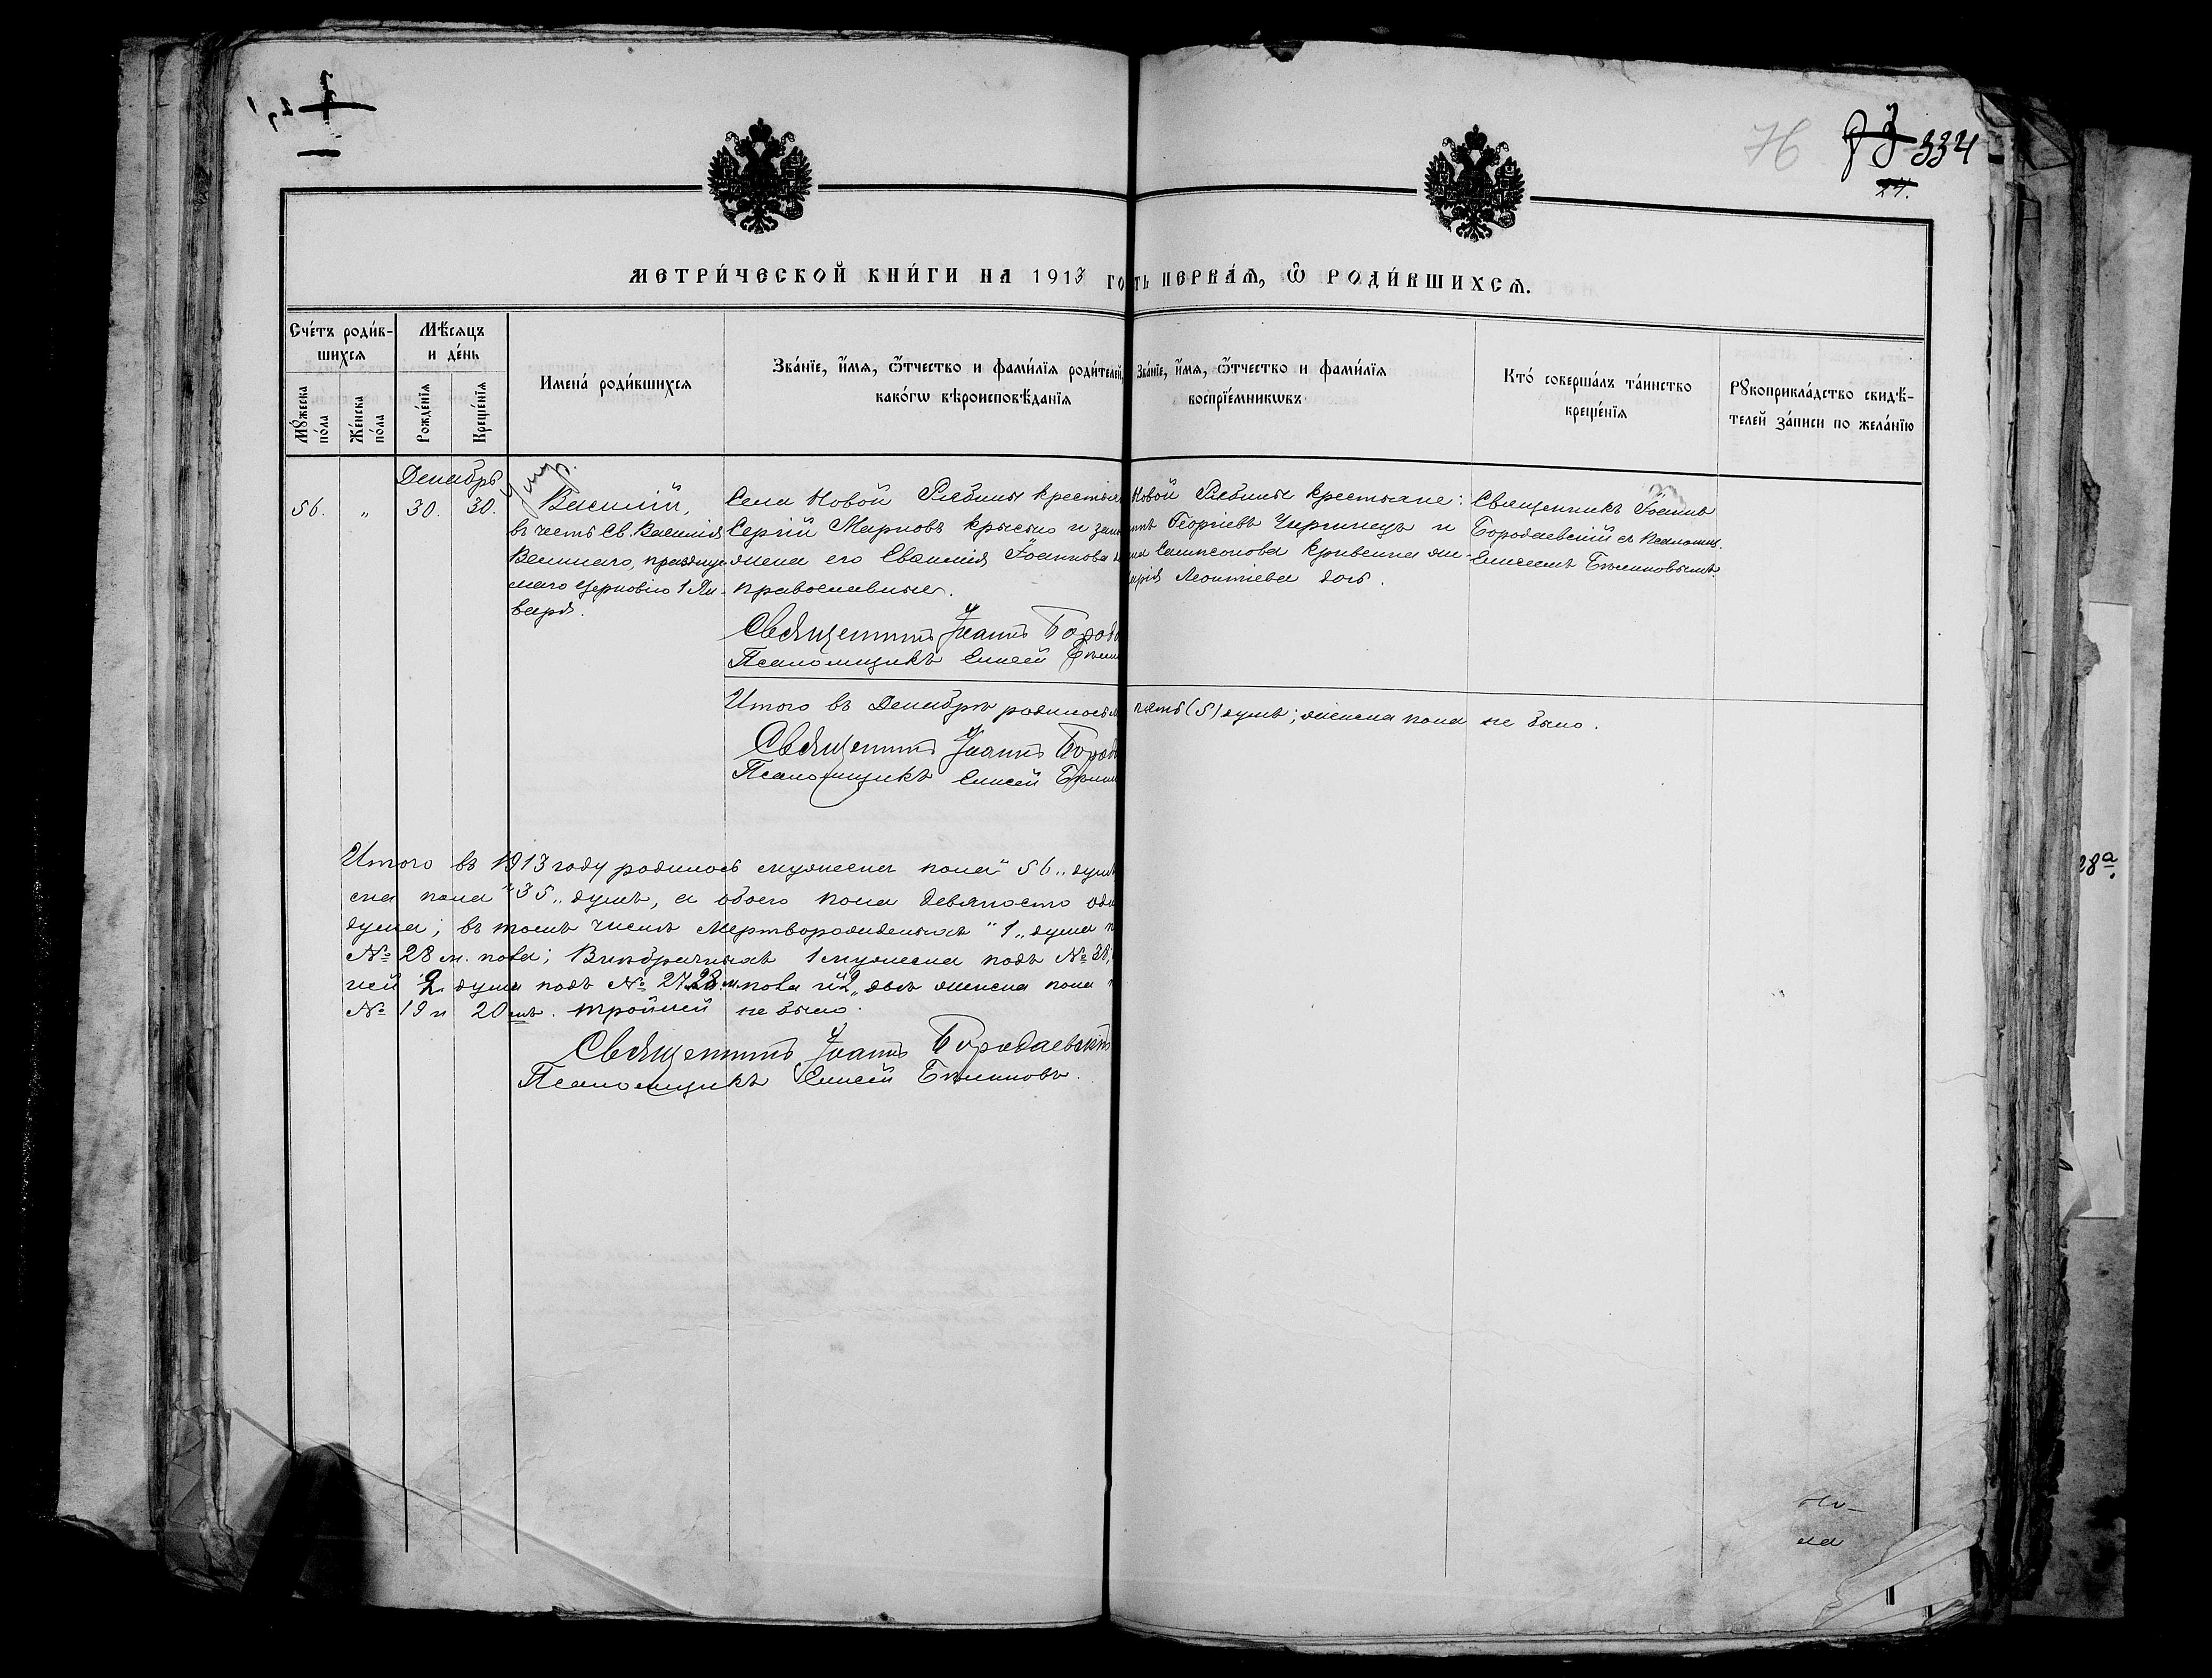 76
334
24.
МЕТРИ́ЧЕСКОЙ КНИ́ГИ НА 1913 ГО
ТЬ ПЕРВА́Ѧ, Ѿ РОДИ́ВШИХСѦ.
Сче́тъ роди́в-
шихсѧ
Мѣ́сѧцъ
и де́нь
Мꙋ́жеска по́ла
Же́нска по́ла
Рожде́нїѧ
Креще́нїѧ
Имена́ роди́вшихсѧ
Зва́нїе, и҆́мѧ, ѻ҆́тчество и фами́лїѧ роди́телей,
како́гѡ вѣроисповѣ́данїѧ
Зва́нїе, и҆́мѧ, ѻ҆́тчество и фами́лїѧ
воспрїе́мникѡвъ
Кто́ соверша́лъ та́инство
креще́нїѧ
Рꙋкоприкла́дство свидѣ́-
телей за́писи по жела́нїю
Декабрь
умр.
56. „ 30. 30.
Василій,
въ честь Св. Василія
Великаго, праздnуе
маго Церковію 1 Ян-
варя.
Села Новой Рябины крестьян
Сергій Марковъ Крысько и зако
жена его Евѳимія Іоаннова
православные.
Священникъ Іоаннъ Бород
Псаломщикъ Елисей Бѣли
Новой Рябины крестьяне:
Георгіевъ Чиргинецъ и
Сампсонова Кривенка же-
Леонтіева дочь.
Священникъ Іоаннъ
Бородаевскій съ Псаломщ.
Елисеемъ Бѣликовымъ.
Итого въ Декабрѣ родилось м
пять (5) душъ; женска пола не было.
Священникъ Іоаннъ Бород
Псаломщикъ Елисей Бѣлик
Итого въ 1913 году родилось мужеска пола „56„ душъ
ска пола „35„ душъ, а обоего пола девяносто одн
душа; въ томъ числѣ Мертворожденныхъ „1„ душа п
№ 28 м. пола; Внѣбрачныхъ 1 мужеска подъ № 38,
ней 2 души подъ № 27, 28 м. пола и „2„ двѣ женска пола п
№ 19 и 20мъ. тройней не было.
Священникъ Іоаннъ Бородаевскій
Псаломщикъ Елисей Бѣликовъ.
28а.